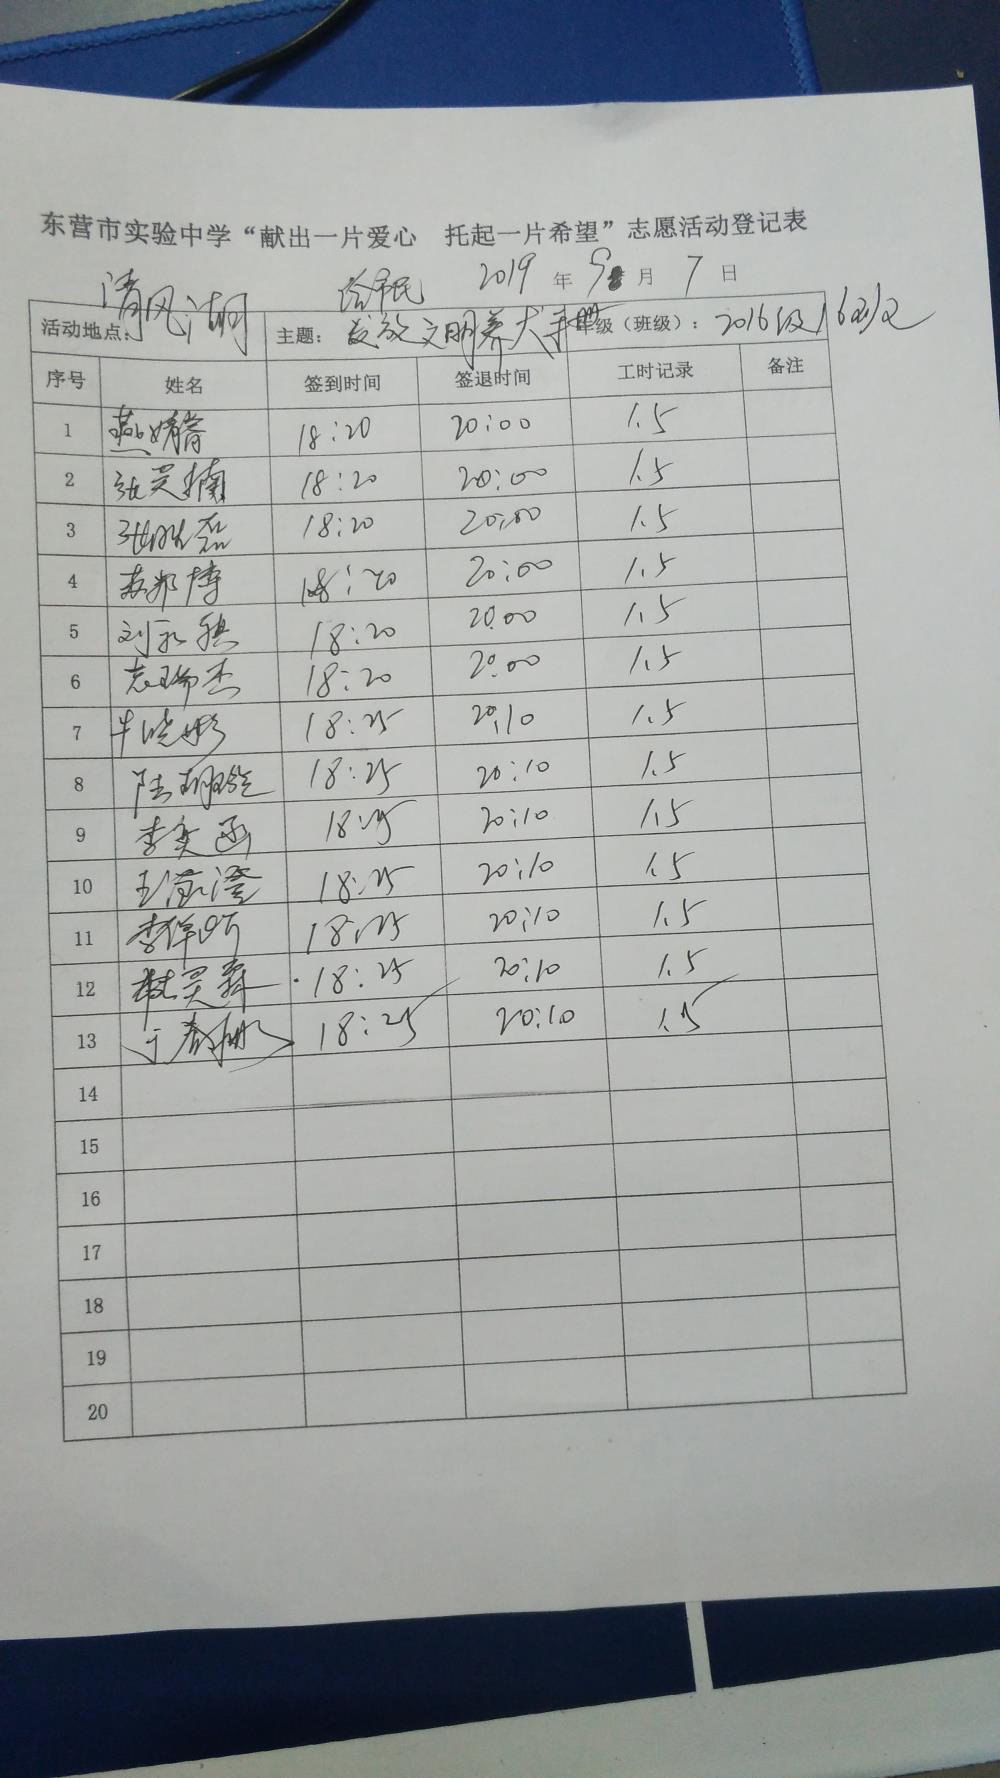 东营市实验中学“献出一片爱心 托起一片希望”志愿活动登记表
2019年9月7日
活动地点: 清风湖 主题: 给市民发放文明养犬手册 年级（班级）: 2016级16班
序号 姓名 签到时间 签退时间 工时记录 备注
1 18:20 20:00 1.5
2 张昊楠 18:20 20:00 1.5
3 18:20 20:00 1.5
4 18:20 20:00 1.5
5 刘永祺 18:20 20:00 1.5
6 18:20 20:00 1.5
7 牛晓彤 18:25 20:10 1.5
8 18:25 20:10 1.5
9 李奕函 18:25 20:10 1.5
10 18:25 20:10 1.5
11 18:25 20:10 1.5
12 18:25 20:10 1.5
13 18:25 20:10 1.5
14
15
16
17
18
19
20